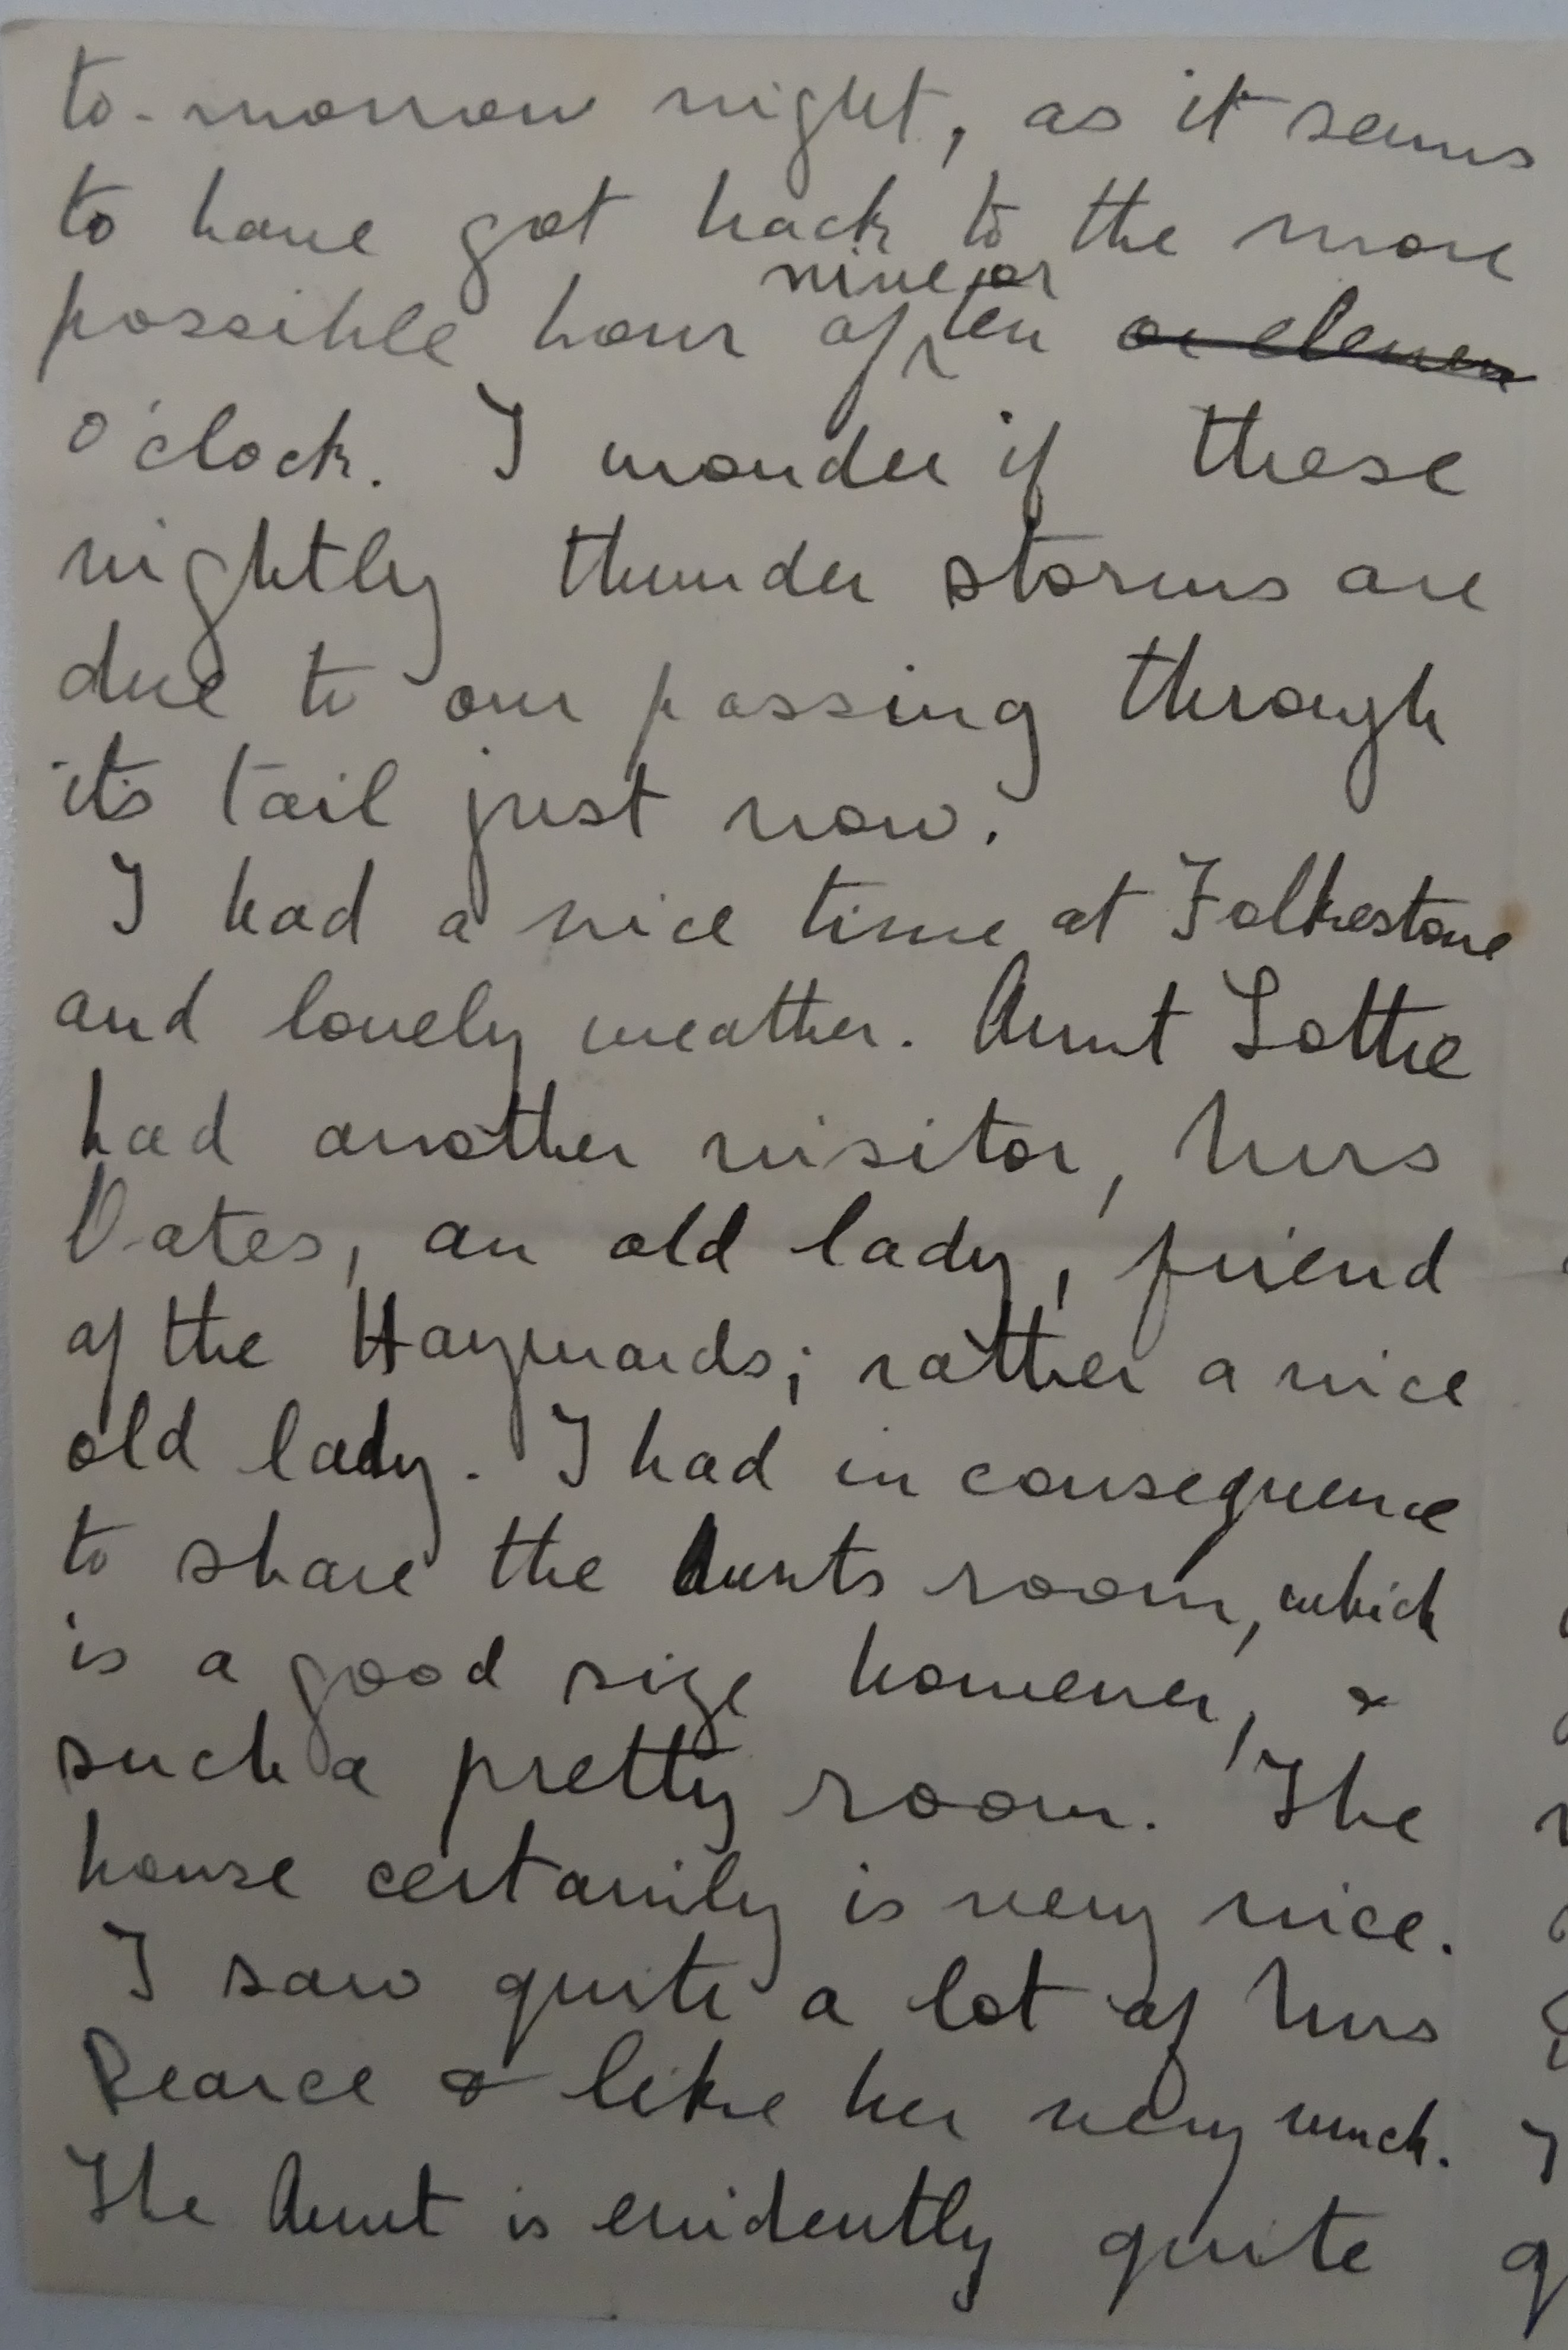 to-morrow night, as it seems
to have got back to the more
possible hour of nine or ten or eleven
o'clock. I wonder if these
nightly thunder storms are
due to our passing through
its tail just now.
I had a nice time at Folkestone
and lovely weather. Aunt Lottie
had another visitor, Mrs
Oates, an old lady, friend
of the Haywards; rather a nice
old lady. I had in consequence
to share the Aunts room, which
is a good size however, &
such a pretty room. The
house certainly is very nice.
I saw quite a lot of Mrs
Pearce & like her very much.
The Aunt is evidently quite